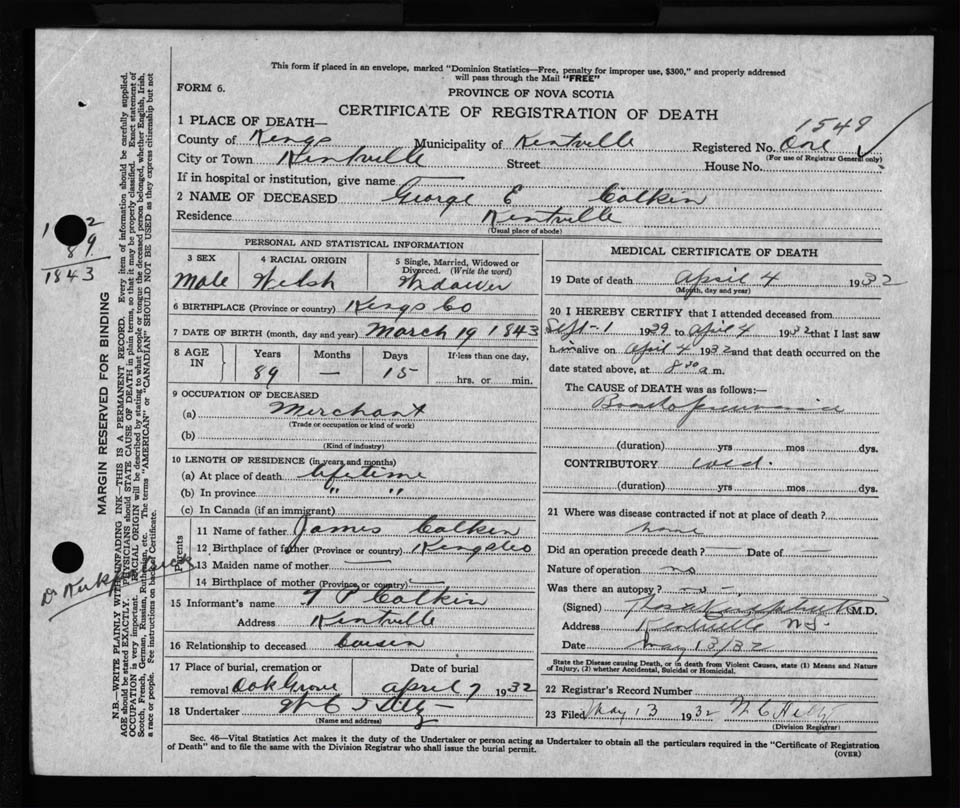 This form if placed in an envelope, marked "Dominion Statistics—Free, penalty for improper use, $300," and properly addressed
will pass through the Mail "FREE"
FORM 6.
PROVINCE OF NOVA SCOTIA
CERTIFICATE OF REGISTRATION OF DEATH
1549
1 PLACE OF DEATH—
County of Kings Municipality of Kentville Registered No. One
(For use of Registrar General only)
City or Town Kentville Street House No.
If in hospital or institution, give name
2 NAME OF DECEASED George E Calkin
Residence Kentville
(Usual place of abode)
PERSONAL AND STATISTICAL INFORMATION
3 SEX
Male
4 RACIAL ORIGIN
Welsh
5 Single, Married, Widowed or
Divorced. (Write the word)
Widower
6 BIRTHPLACE (Province or country) Kings Co
7 DATE OF BIRTH (month, day and year) March 19 1843
8 AGE IN
Years Months Days If less than one day,
89 — 15 hrs. or min.
9 OCCUPATION OF DECEASED
(a) Merchant
(Trade or occupation or kind of work)
(b)
(Kind of industry)
10 LENGTH OF RESIDENCE (in years and months)
(a) At place of death lifetime
(b) In province " "
(c) In Canada (if an immigrant)
Parents
11 Name of father James Calkin
12 Birthplace of father (Province or country) Kings Co
13 Maiden name of mother —
14 Birthplace of mother (Province or country) —
15 Informant's name T P Calkin
Address Kentville
16 Relationship to deceased Cousin
17 Place of burial, cremation or Date of burial
removal Oak Grove April 7 1932
18 Undertaker
(Name and address)
MEDICAL CERTIFICATE OF DEATH
19 Date of death April 4 1932
(Month, day and year)
20 I HEREBY CERTIFY that I attended deceased from
Sept-1 1929 to April 4 1932 that I last saw
him alive on April 4 1932 and that death occurred on the
date stated above, at 8 30 a m.
The CAUSE of DEATH was as follows:—
Bronchopneumonia
(duration) yrs mos dys.
CONTRIBUTORY cold.
(duration) yrs mos dys.
21 Where was disease contracted if not at place of death?
home
Did an operation precede death? — Date of —
Nature of operation no
Was there an autopsy? no
(Signed) M.D.
Address Kentville N.S.
Date May 13/32
State the Disease causing Death, or in death from Violent Causes, state (1) Means and Nature
of Injury, (2) whether Accidental, Suicidal or Homicidal.
22 Registrar's Record Number
23 Filed May 13 1932
(Division Registrar)
Sec. 46—Vital Statistics Act makes it the duty of the Undertaker or person acting as Undertaker to obtain all the particulars required in the "Certificate of Registration
of Death" and to file the same with the Division Registrar who shall issue the burial permit.
(OVER)
89
1843
MARGIN RESERVED FOR BINDING
N.B.—WRITE PLAINLY WITH UNFADING INK—THIS IS A PERMANENT RECORD. Every item of information should be carefully supplied.
AGE should be stated EXACTLY. PHYSICIANS should STATE CAUSE OF DEATH in plain terms, so that it may be properly classified. Exact statement of
OCCUPATION is very important. RACIAL ORIGIN will be described by stating to what people or tongue the deceased person belonged, whether English, Irish,
Scotch, French, German, Russian, Ruthenian, etc. The terms "AMERICAN" or "CANADIAN" SHOULD NOT BE USED as they express citizenship but not
a race or people. See instructions on back of Certificate.